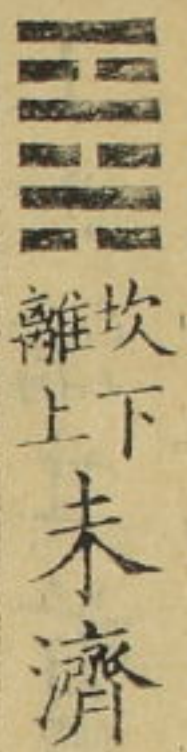 坎下
離上
未濟